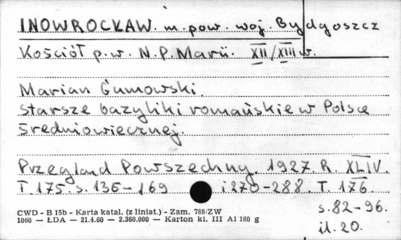 INOWROCŁAW. m. pow. woj. Bydgoszcz
Kościół p.w. N.P. Marii. XII/XIII w.
Marian Gumowski.
Starsze bazyliki romańskie w Polsce
średniowiecznej.
Przegląd Powszechny. 1927. R. XLIV.
T. 175 s. 136-169 i 270-288. T. 176
s. 82-96.
il. 20.
CWD - B 15b - Karta katal. (z liniat.) - Zam. 788/ZW
1060 — ŁDA — 21.4.60 — 2.360.000 — Karton kl. III A1 160 g